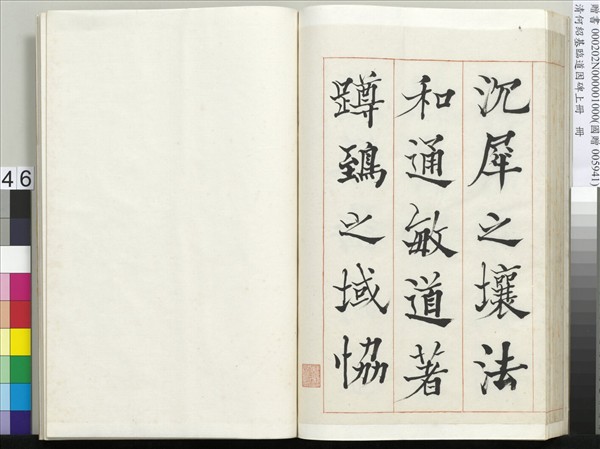 贈書 000202N000001000(圖贈 005941)
清何紹基臨道因碑上冊 冊
沉犀之壤法
和通敏道著
蹲鵄之域恊
46